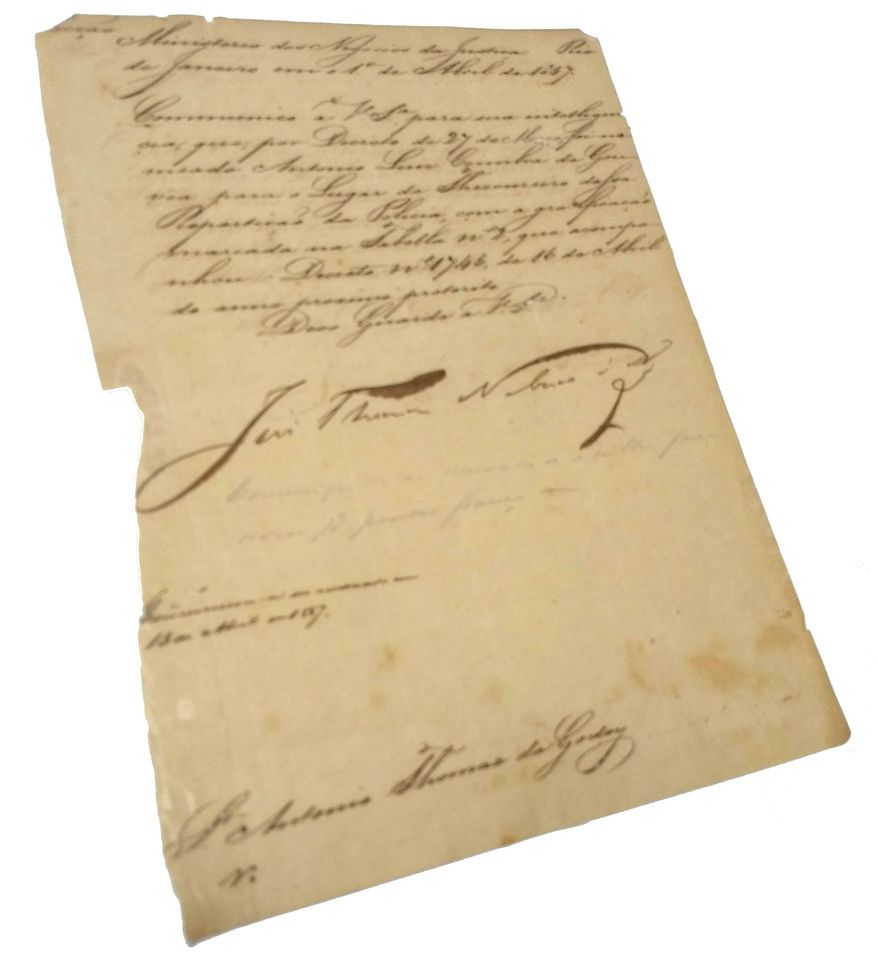 Ministerio dos Negocios da Justiça Rio
de Janeiro em 1º de Abril de 1857.
Communico á V. Sª para sua intelligen
cia, que, por Decreto de 27 de Março foi no
meado Antonio Luiz Cunha de Gou
vea para o Lugar de Thesoureiro dessa
Repartição da Policia, com a gratificação
marcada na Tabella nº 2, que acompa
nhou o Decreto nº 1746, de 16 de Abril
do anno proximo preterito
Deos Guarde a V. Sª.
José Thomaz Nabuco
Communique-se
13 de Abril de 1857.
Sr Antonio Thomaz de Godoy